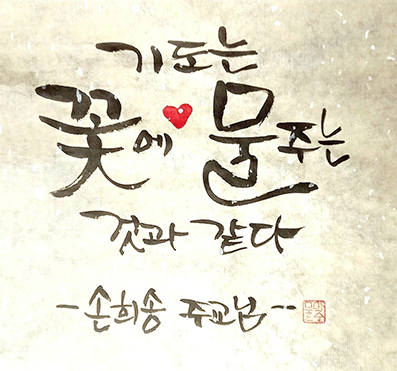 기도는
꽃에 물 주는
것과 같다
- 손희송 주교님 --